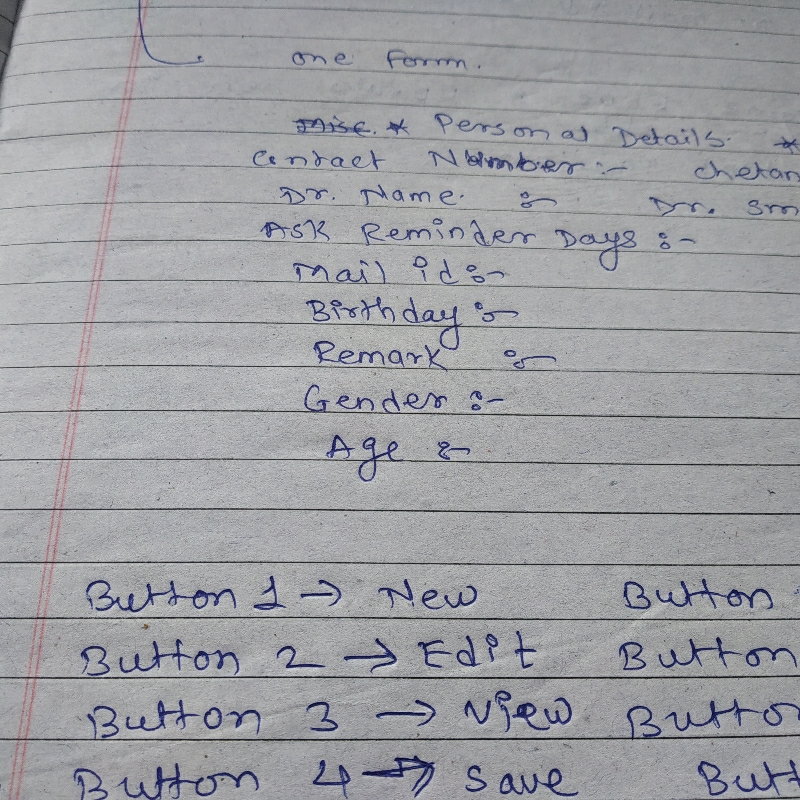 one form.
* Personal Details. *
Contact Number :- chetan
Dr. Name. :- Dr. Sm
Ask Reminder Days :-
Mail id :-
Birthday :-
Remark :-
Gender :-
Age :-
Button 1 → New Button
Button 2 → Edit Button
Button 3 → View Button
Button 4 → Save Butt